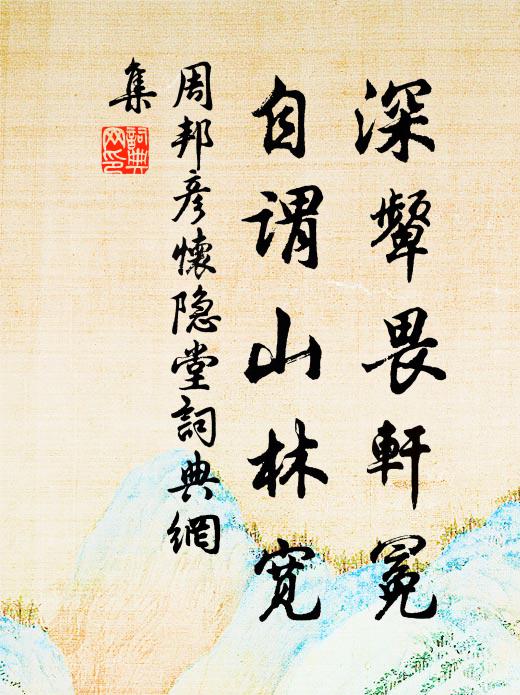 深颦畏軒冕
自谓山林宽
周邦彦懷隐堂詞典網
集
詞典網印